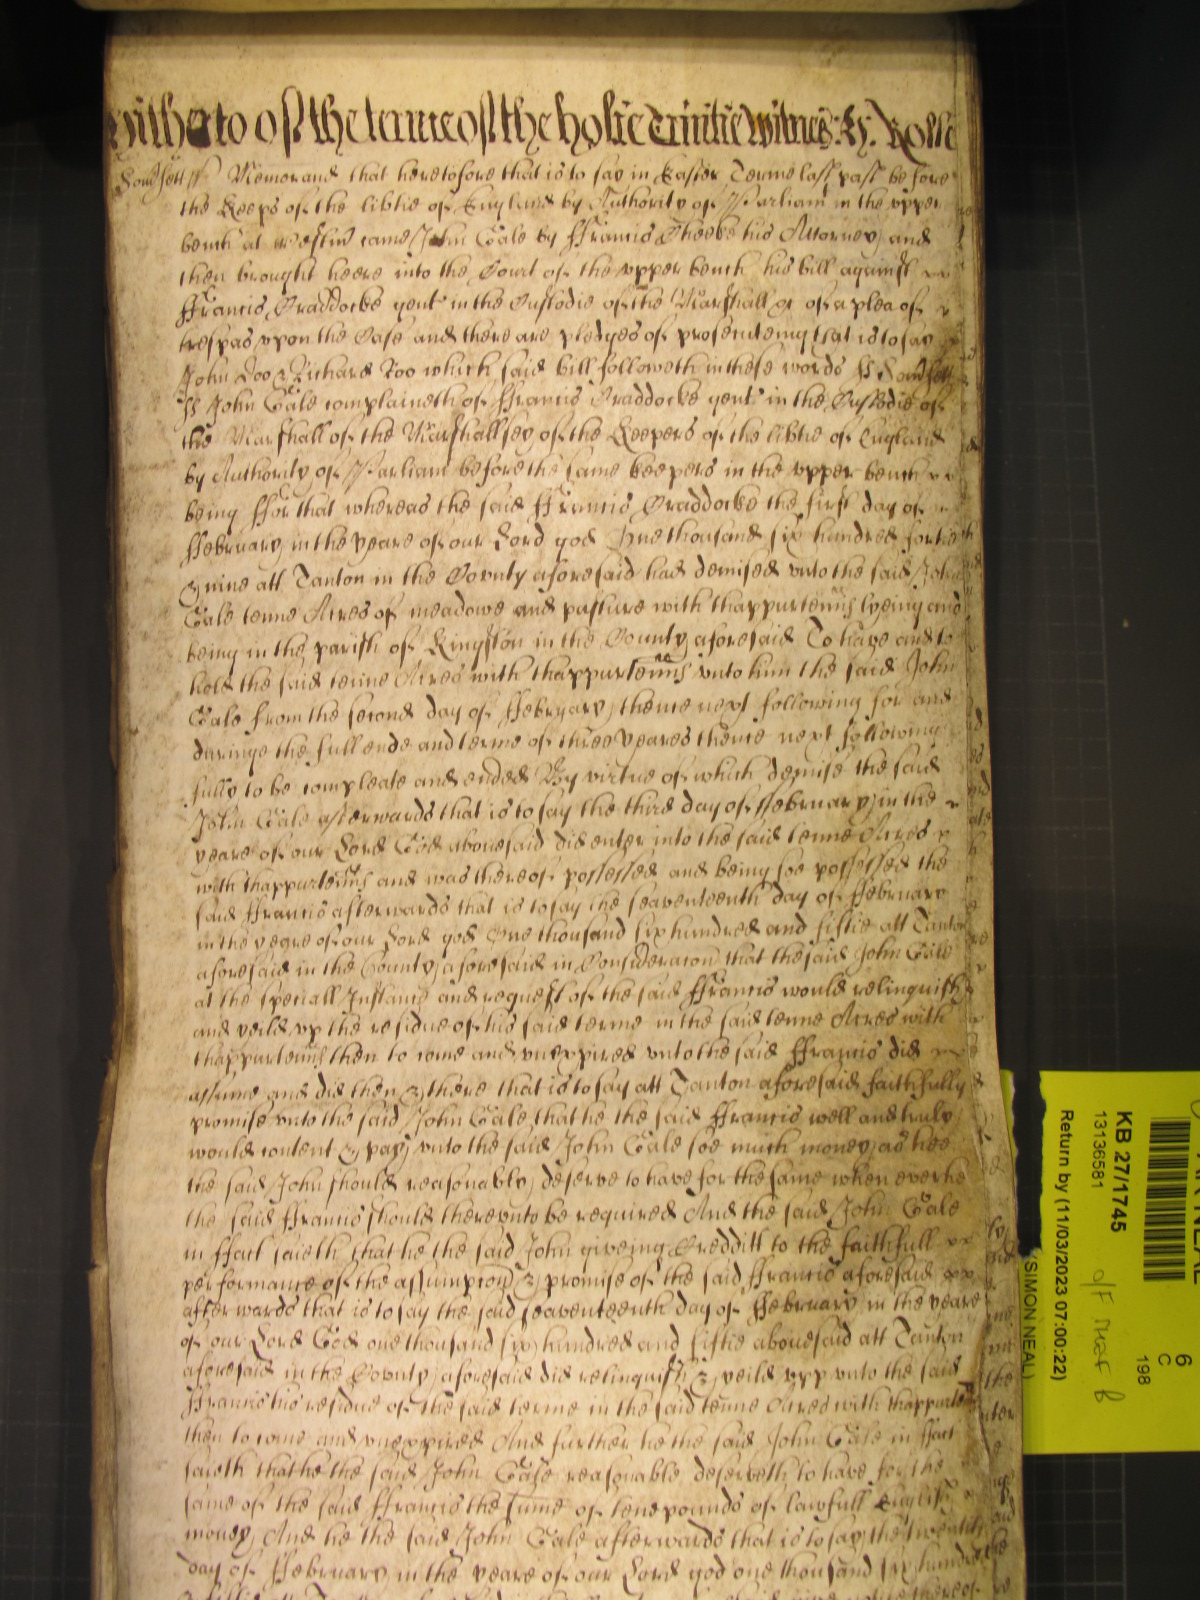 hitherto of the terme of the holie Trinitie Witnes: H. Rolle
Somersett ss Memorand that heretofore that is to say in Easter Terme last past before
the Keeps of the libtie of England by Authority of Parliam in the vpper
bench at Westm came John Gale by ffrancis Cheeke his Attorney and
then brought heere into the Court of the vpper bench his bill against
ffrancis Craddocke gent in the Custodie of the Marshall &c of a plea of
trespas vpon the Case and there are pledges of prosecuteing that is to say
John Doo & Richard Roo which said bill followeth in these words ss Somersett
ss John Gale complaineth of ffrancis Craddocke gent in the Custodie of
the Marshall of the Marshallsey of the Keepers of the libtie of England
by Authority of Parliam before the same keepers in the vpper bench
being ffor that whereas the said ffrancis Craddocke the first day of
ffebruary in the yeare of our Lord god One thousand six hundred fortie
& nine att Tanton in the County aforesaid had demised vnto the said John
Gale tenne Acres of meadowe and pasture with thappurtenncs lyeing and
being in the parish of Kingston in the County aforesaid To have and to
hold the said tenne Acres with thappurtenncs vnto him the said John
Gale from the second day of ffebruary thence next following for and
duringe the full ende and terme of three yeares thence next following
fully to be compleate and ended By virtue of which demise the said
John Gale afterwards that is to say the third day of ffebruary in the
yeare of our Lord God abouesaid did enter into the said tenne Acres
with thappurtenncs and was thereof possessed and being soe possessed the
said ffrancis afterwards that is to say the seaventeenth day of ffebruary
in the yeare of our Lord god One thousand six hundred and fiftie att Tanton
aforesaid in the County aforesaid in Consideracon that the said John Gale
at the speciall Instance and request of the said ffrancis would relinquish
and yeild vp the residue of his said terme in the said tenne Acres with
thappurtenncs then to come and vnexpired vnto the said ffrancis did
assume and did then & there that is to say att Tanton aforesaid faithfully
promise vnto the said John Gale that he the said ffrancis well and truly
would content & pay vnto the said John Gale soe much money as hee
the said John should reasonably deserve to have for the same when ever he
the said ffrancis should therevnto be required And the said John Gale
in ffact saieth that he the said John giveing Creditt to the faithfull
performance of the assumpcon & promise of the said ffrancis aforesaid
afterwards that is to say the said seaventeenth day of ffebruary in the yeare
of our Lord God one thousand six hundred and fiftie abouesaid att Tanton
aforesaid in the County aforesaid did relinquish & yeild vpp vnto the said
ffrancis his residue of the said terme in the said tenne Acres with thappurten
then to come and vnexpired And further he the said John Gale in ffact
saieth that he the said John Gale reasonable deserveth to have for the
same of the said ffrancis the sume of tenn pounds of lawfull English
money And he the said John Gale afterwards that is to say the twentith
day of ffebruary in the yeare of our Lord god one thousand six hundred
KB 27/1745
13136581
Return by (11/03/2023 07:00:22)
(SIMON NEAL)
6
C
198